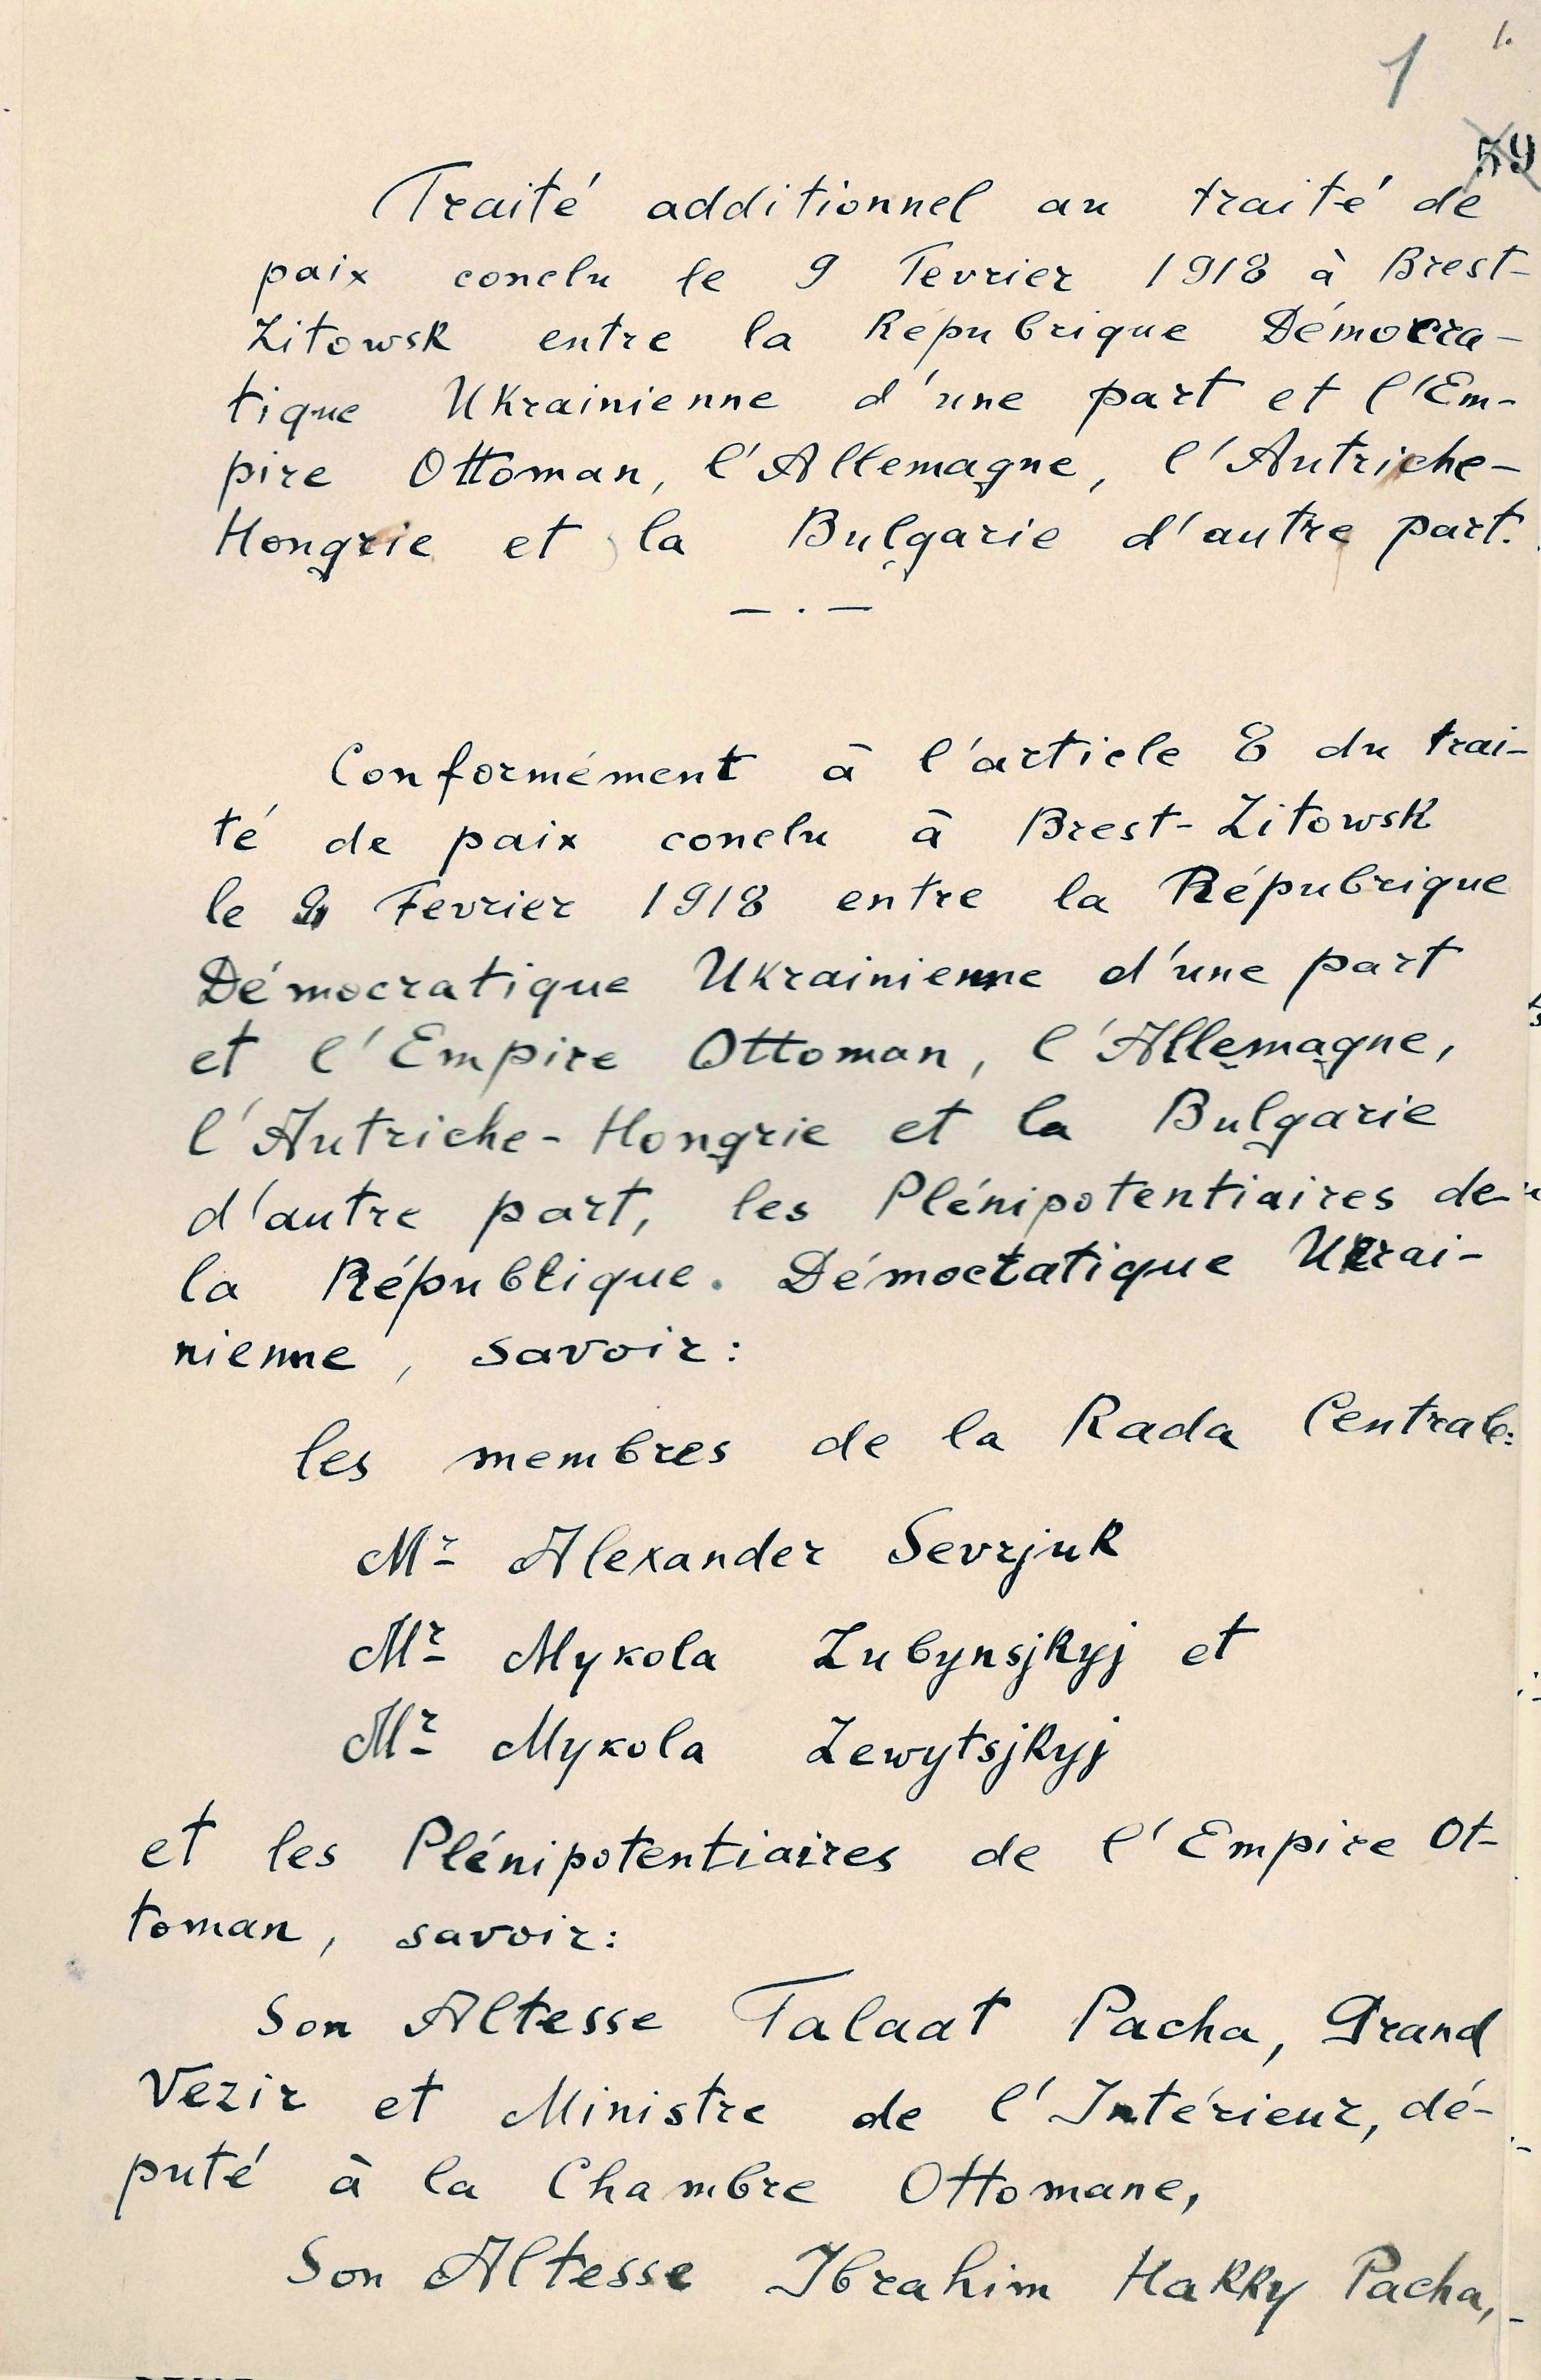 1 1.
59
Traité additionnel au traité de
paix conclu le 9 Fevrier 1918 à Brest-
Litowsk entre la Répubrique Démocra-
tique Ukrainienne d'une part et l'Em-
pire Ottoman, l'Allemagne, l'Autriche-
Hongrie et la Bulgarie d'autre part.
— . —
Conformément à l'article 8 du trai-
té de paix conclu à Brest-Litowsk
le 9 Fevrier 1918 entre la Répubrique
Démocratique Ukrainienne d'une part
et l'Empire Ottoman, l'Allemagne,
l'Autriche-Hongrie et la Bulgarie
d'autre part, les Plénipotentiaires de
la République. Démocratique Ukrai-
nienne, savoir:
les membres de la Rada Centrale:
Mr Alexander Sevrjuk
Mr Mykola Lubynsjkyj et
Mr Mykola Lewytsjkyj
et les Plénipotentiaires de l'Empire Ot-
toman, savoir:
Son Altesse Talaat Pacha, Grand
Vezir et Ministre de l'Intérieur, dé-
puté à la Chambre Ottomane,
Son Altesse Ibrahim Hakky Pacha,